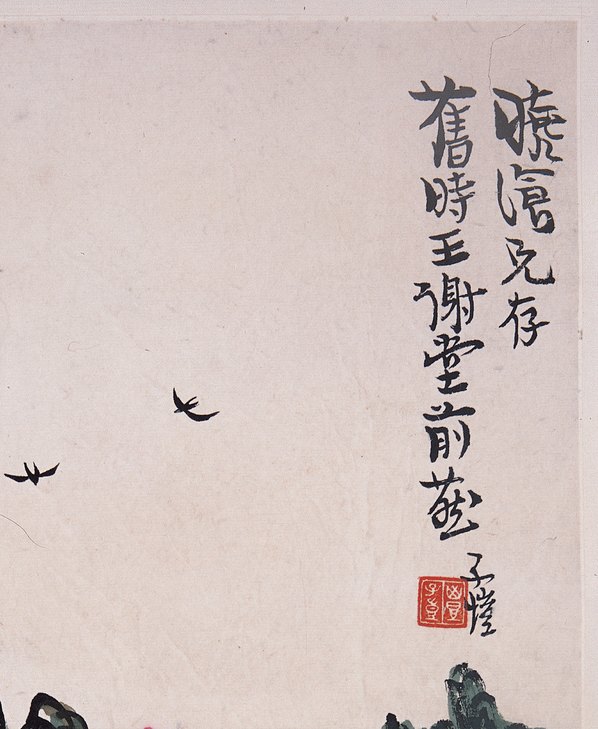 曉滄兄存
舊時王謝堂前燕
子愷